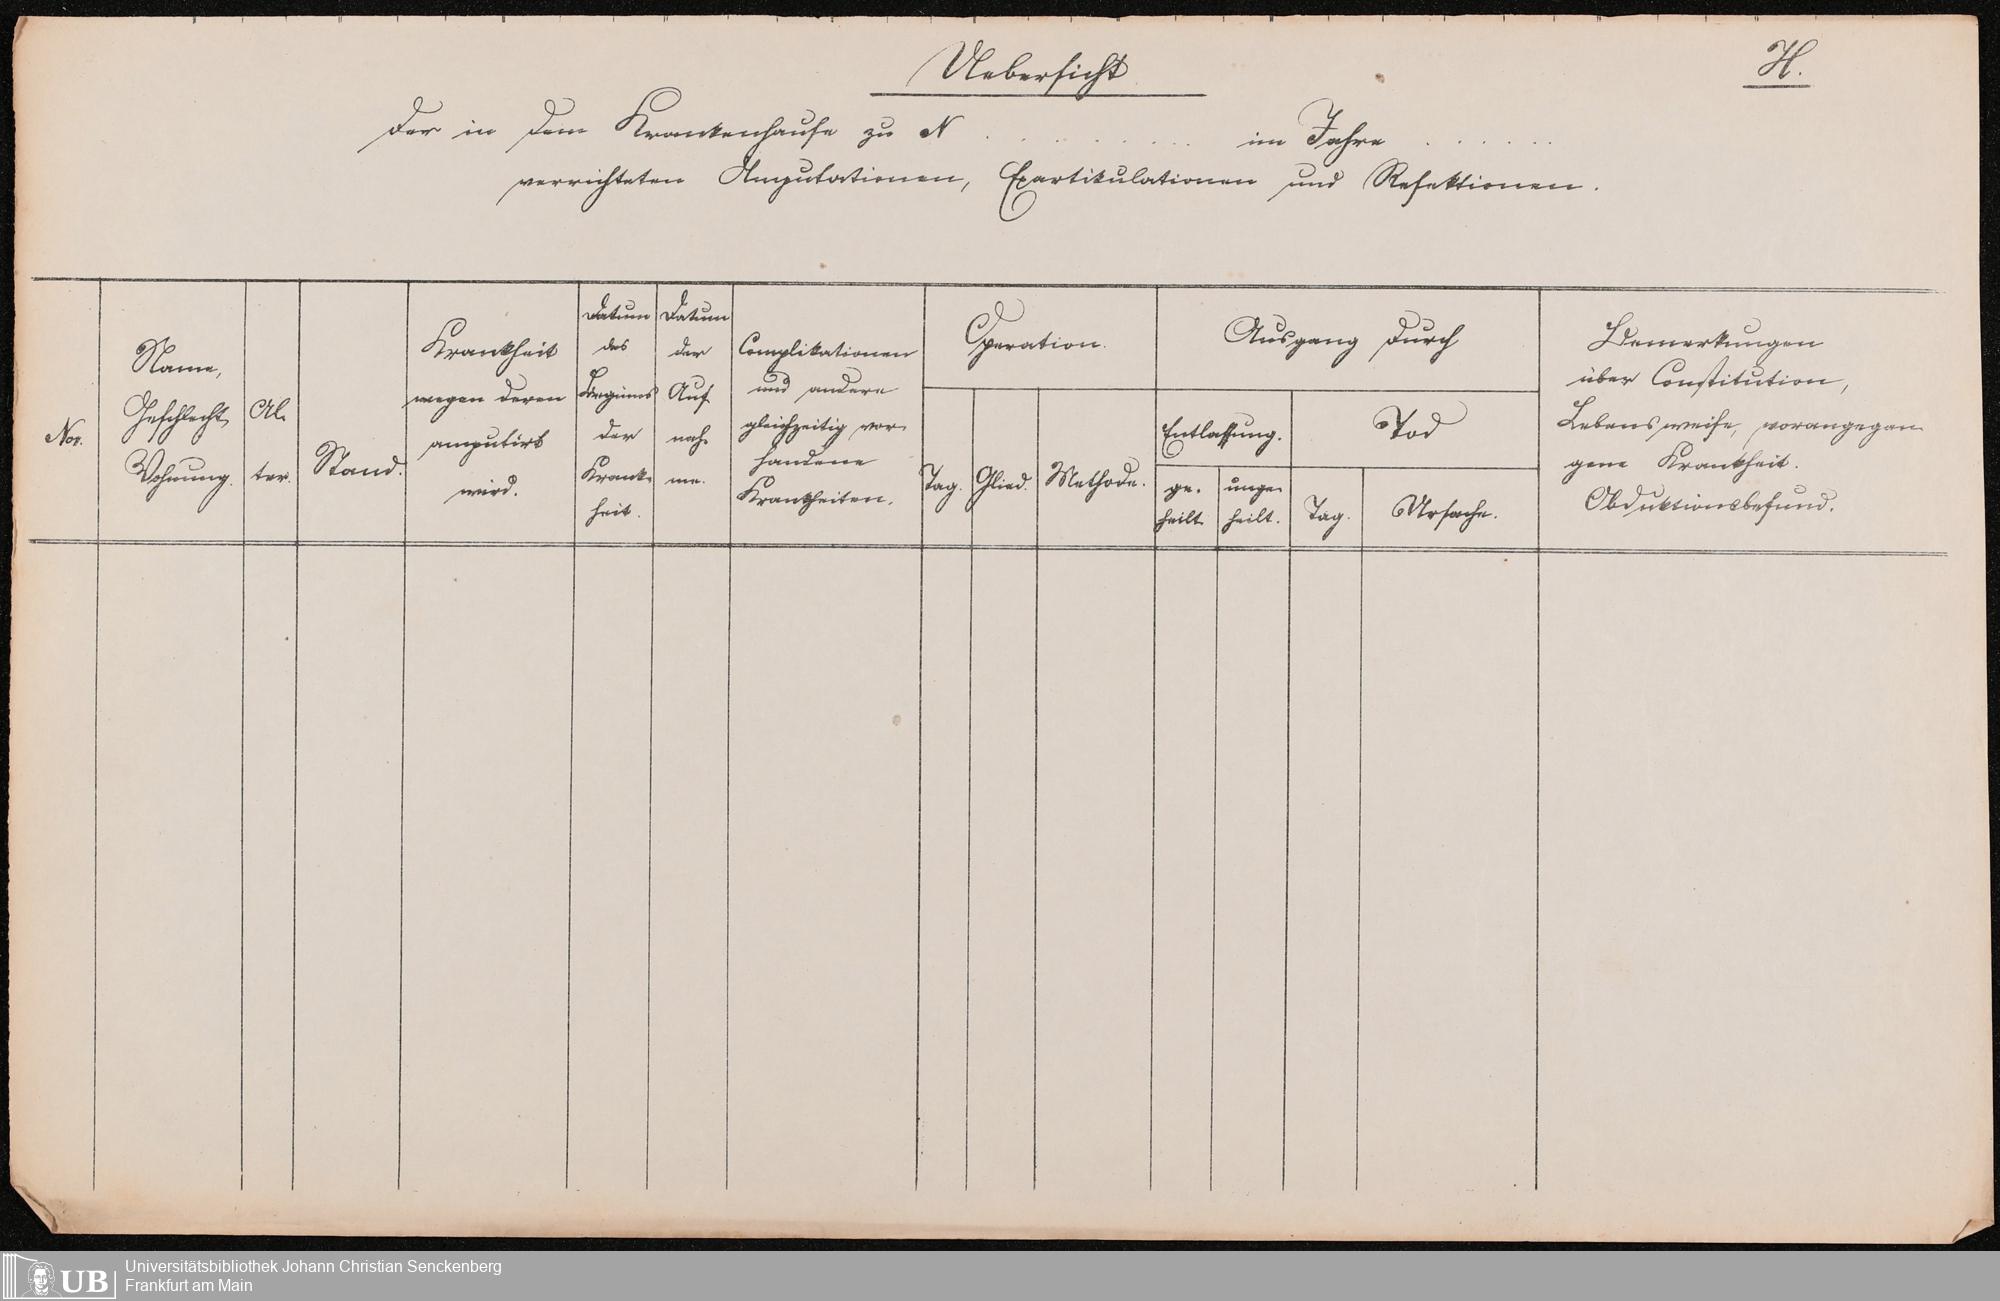 Uebersicht
H.
der in dem Krankenhause zu N . . . . . . . im Jahre . . . . . .
verrichteten Amputationen, Exartikulationen und Resektionen.
Nor.
Name,
Geschlecht,
Wohnung.
Al-
ter.
Stand.
Krankheit
wegen deren
amputirt
wird.
Datum
des
Beginnes
der
Krank-
heit.
Datum
der
Auf-
nah-
me.
Complikationen
und andere
gleichzeitig vor-
handene
Krankheiten.
Operation.
Tag.
Glied.
Methode.
Ausgang durch
Entlassung.
ge-
heilt.
unge-
heilt.
Tod
Tag.
Ursache.
Bemerkungen
über Constitution,
Lebensweise, vorangegan-
gene Krankheit.
Obduktionsbefund.
UB
Universitätsbibliothek Johann Christian Senckenberg
Frankfurt am Main